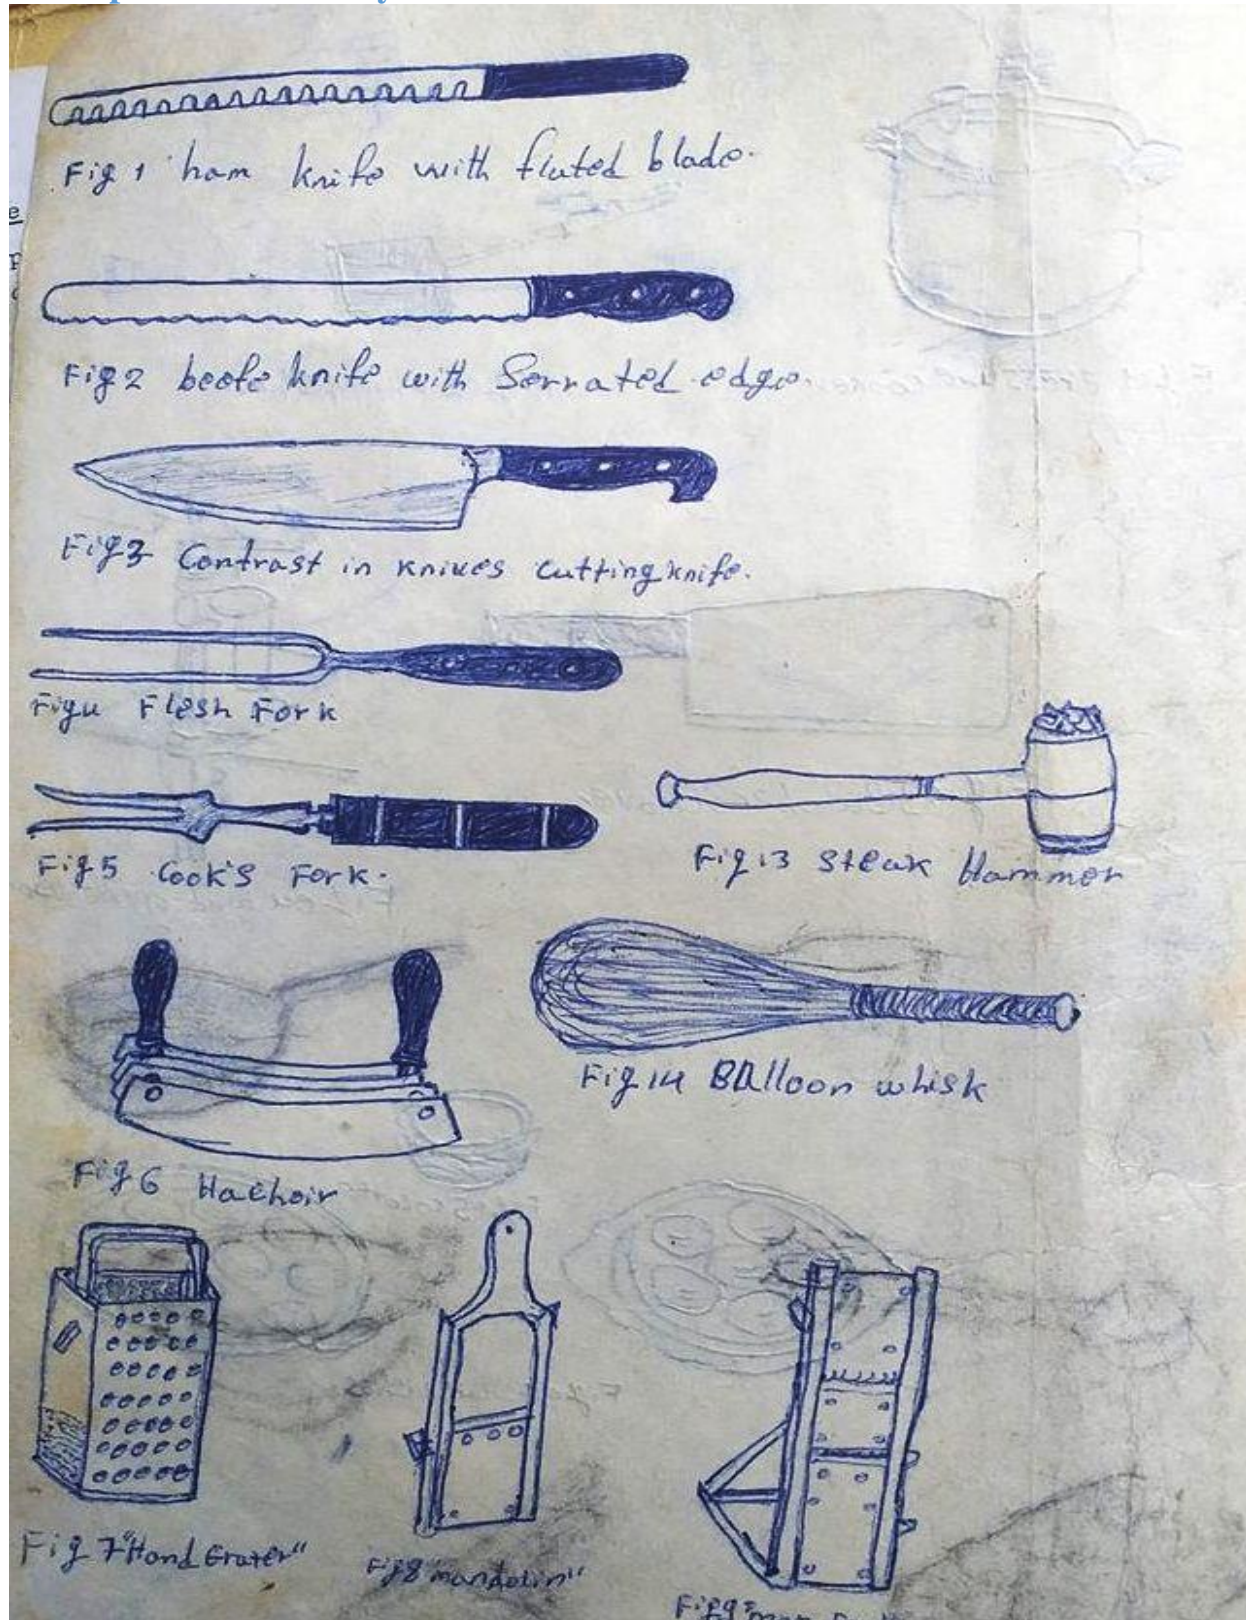 Fig 1 ham knife with fluted blade.
Fig 2 beefe knife with Serrated edge.
Fig 3 Contrast in knives cutting knife.
Fig 4 Flesh Fork
Fig 5 Cook's Fork.
Fig 13 Steak Hammer
Fig 14 BAlloon whisk
Fig 6 Hachoir
Fig 7 "Hand Grater"
Fig 8 "mandolin"
Fig 9"